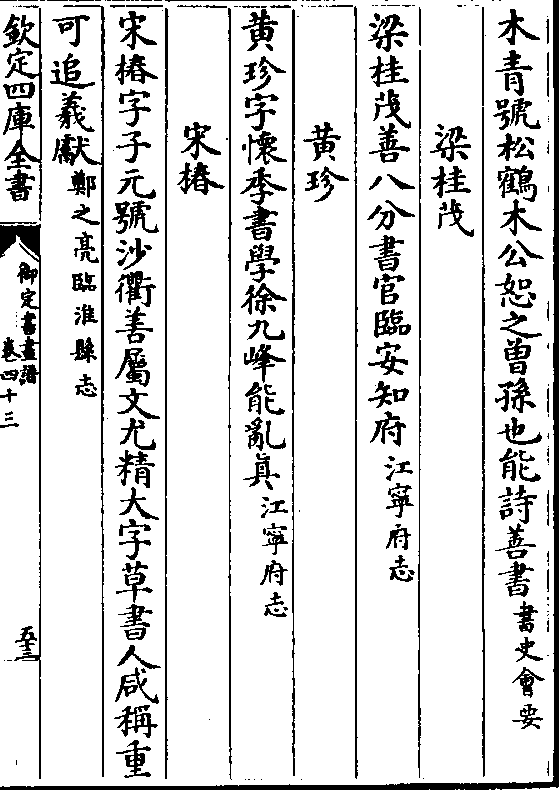 木青號松鶴木公恕之曽孫也能詩善書書史會要
梁桂茂
梁桂茂善八分書官臨安知府江寧府志
黄珍
黄珍字懷季書學徐九峰能亂真江寧府志
宋椿
宋椿字子元號沙衢善屬文尤精大字草書人咸稱重
可追羲獻鄭之亮臨淮縣志
欽定四庫全書
御定書畫譜
卷四十三
五十三